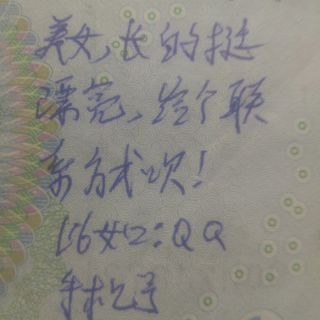 美女,长的挺
漂亮,给个联
系方式呗!
比如:QQ
手机号